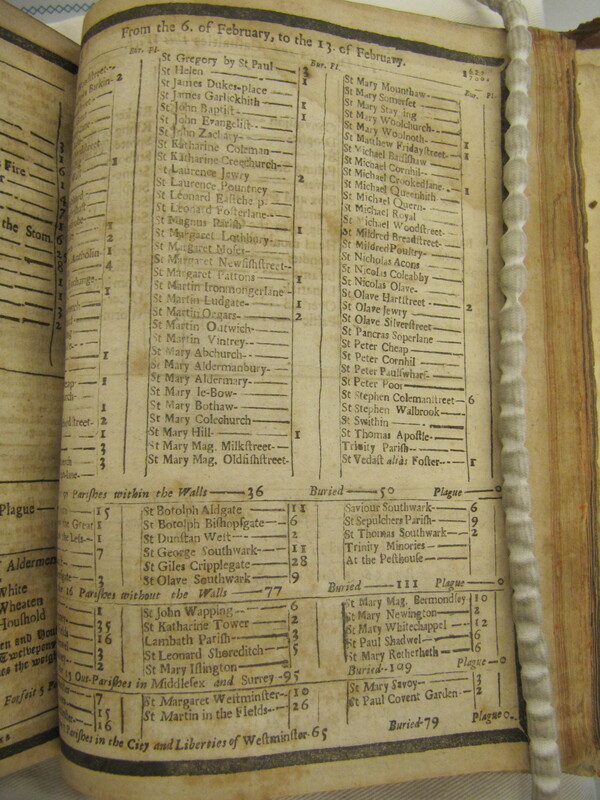 From the 6. of February, to the 13. of February.
Bur. Pl.
St Gregory by St Paul
St Helen 1
St James Dukes-place
St James Garlickhith 1
St John Baptist 1
St John Evangelist
St John Zachary
St Katharine Coleman
St Katharine Creechurch
St Laurence Jewry 2
St Laurence Pountney
St Leonard Eastcheap
St Leonard Fosterlane
St Magnus Parish
St Margaret Lothbury 1
St Margaret Moses
St Margaret Newfishstreet
St Margaret Pattons 1
St Martin Ironmongerlane
St Martin Ludgate 1
St Martin Orgars 2
St Martin Outwich
St Martin Vintrey
St Mary Abchurch
St Mary Aldermanbury
St Mary Aldermary
St Mary le-Bow
St Mary Bothaw
St Mary Colechurch
St Mary Hill 1
St Mary Mag. Milkstreet
St Mary Mag. Oldfishstreet
Bur. Pl.
St Mary Mounthaw
St Mary Somerset
St Mary Stayning
St Mary Woolchurch
St Mary Woolnoth
St Matthew Fridaystreet 1
St Michael Bassishaw
St Michael Cornhil
St Michael Crookedlane
St Michael Queenhith 1
St Michael Quern
St Michael Royal
St Michael Woodstreet
St Mildred Breadstreet
St Mildred Poultry
St Nicholas Acons
St Nicolas Coleabby
St Nicolas Olave
St Olave Hartstreet
St Olave Jewry 2
St Olave Silverstreet
St Pancras Soperlane
St Peter Cheap
St Peter Cornhil
St Peter Paulswharf
St Peter Poor
St Stephen Colemanstreet 6
St Stephen Walbrook
St Swithin
St Thomas Apostle
Trinity Parish
St Vedast alias Foster 1
Parishes within the Walls 36 Buried 50 Plague 0
St Botolph Aldgate 11
St Botolph Bishopsgate 6
St Dunstan West 2
St George Southwark 11
St Giles Cripplegate 28
St Olave Southwark 9
Saviour Southwark 6
St Sepulchers Parish 9
St Thomas Southwark 2
Trinity Minories
At the Pesthouse
16 Parishes without the Walls 77 Buried 111 Plague 0
St John Wapping 6
St Katharine Tower 2
Lambath Parish 3
St Leonard Shoreditch 5
St Mary Islington 2
St Mary Mag. Bermondsey 10
St Mary Newington 2
St Mary Whitechappel 12
St Paul Shadwel 6
St Mary Retherheth 6
Out-Parishes in Middlesex and Surrey 95 Buried 109 Plague 0
St Margaret Westminster 10
St Martin in the Fields 26
St Mary Savoy 3
St Paul Covent Garden 2
Parishes in the City and Liberties of Westminster 65 Buried 79 Plague 0